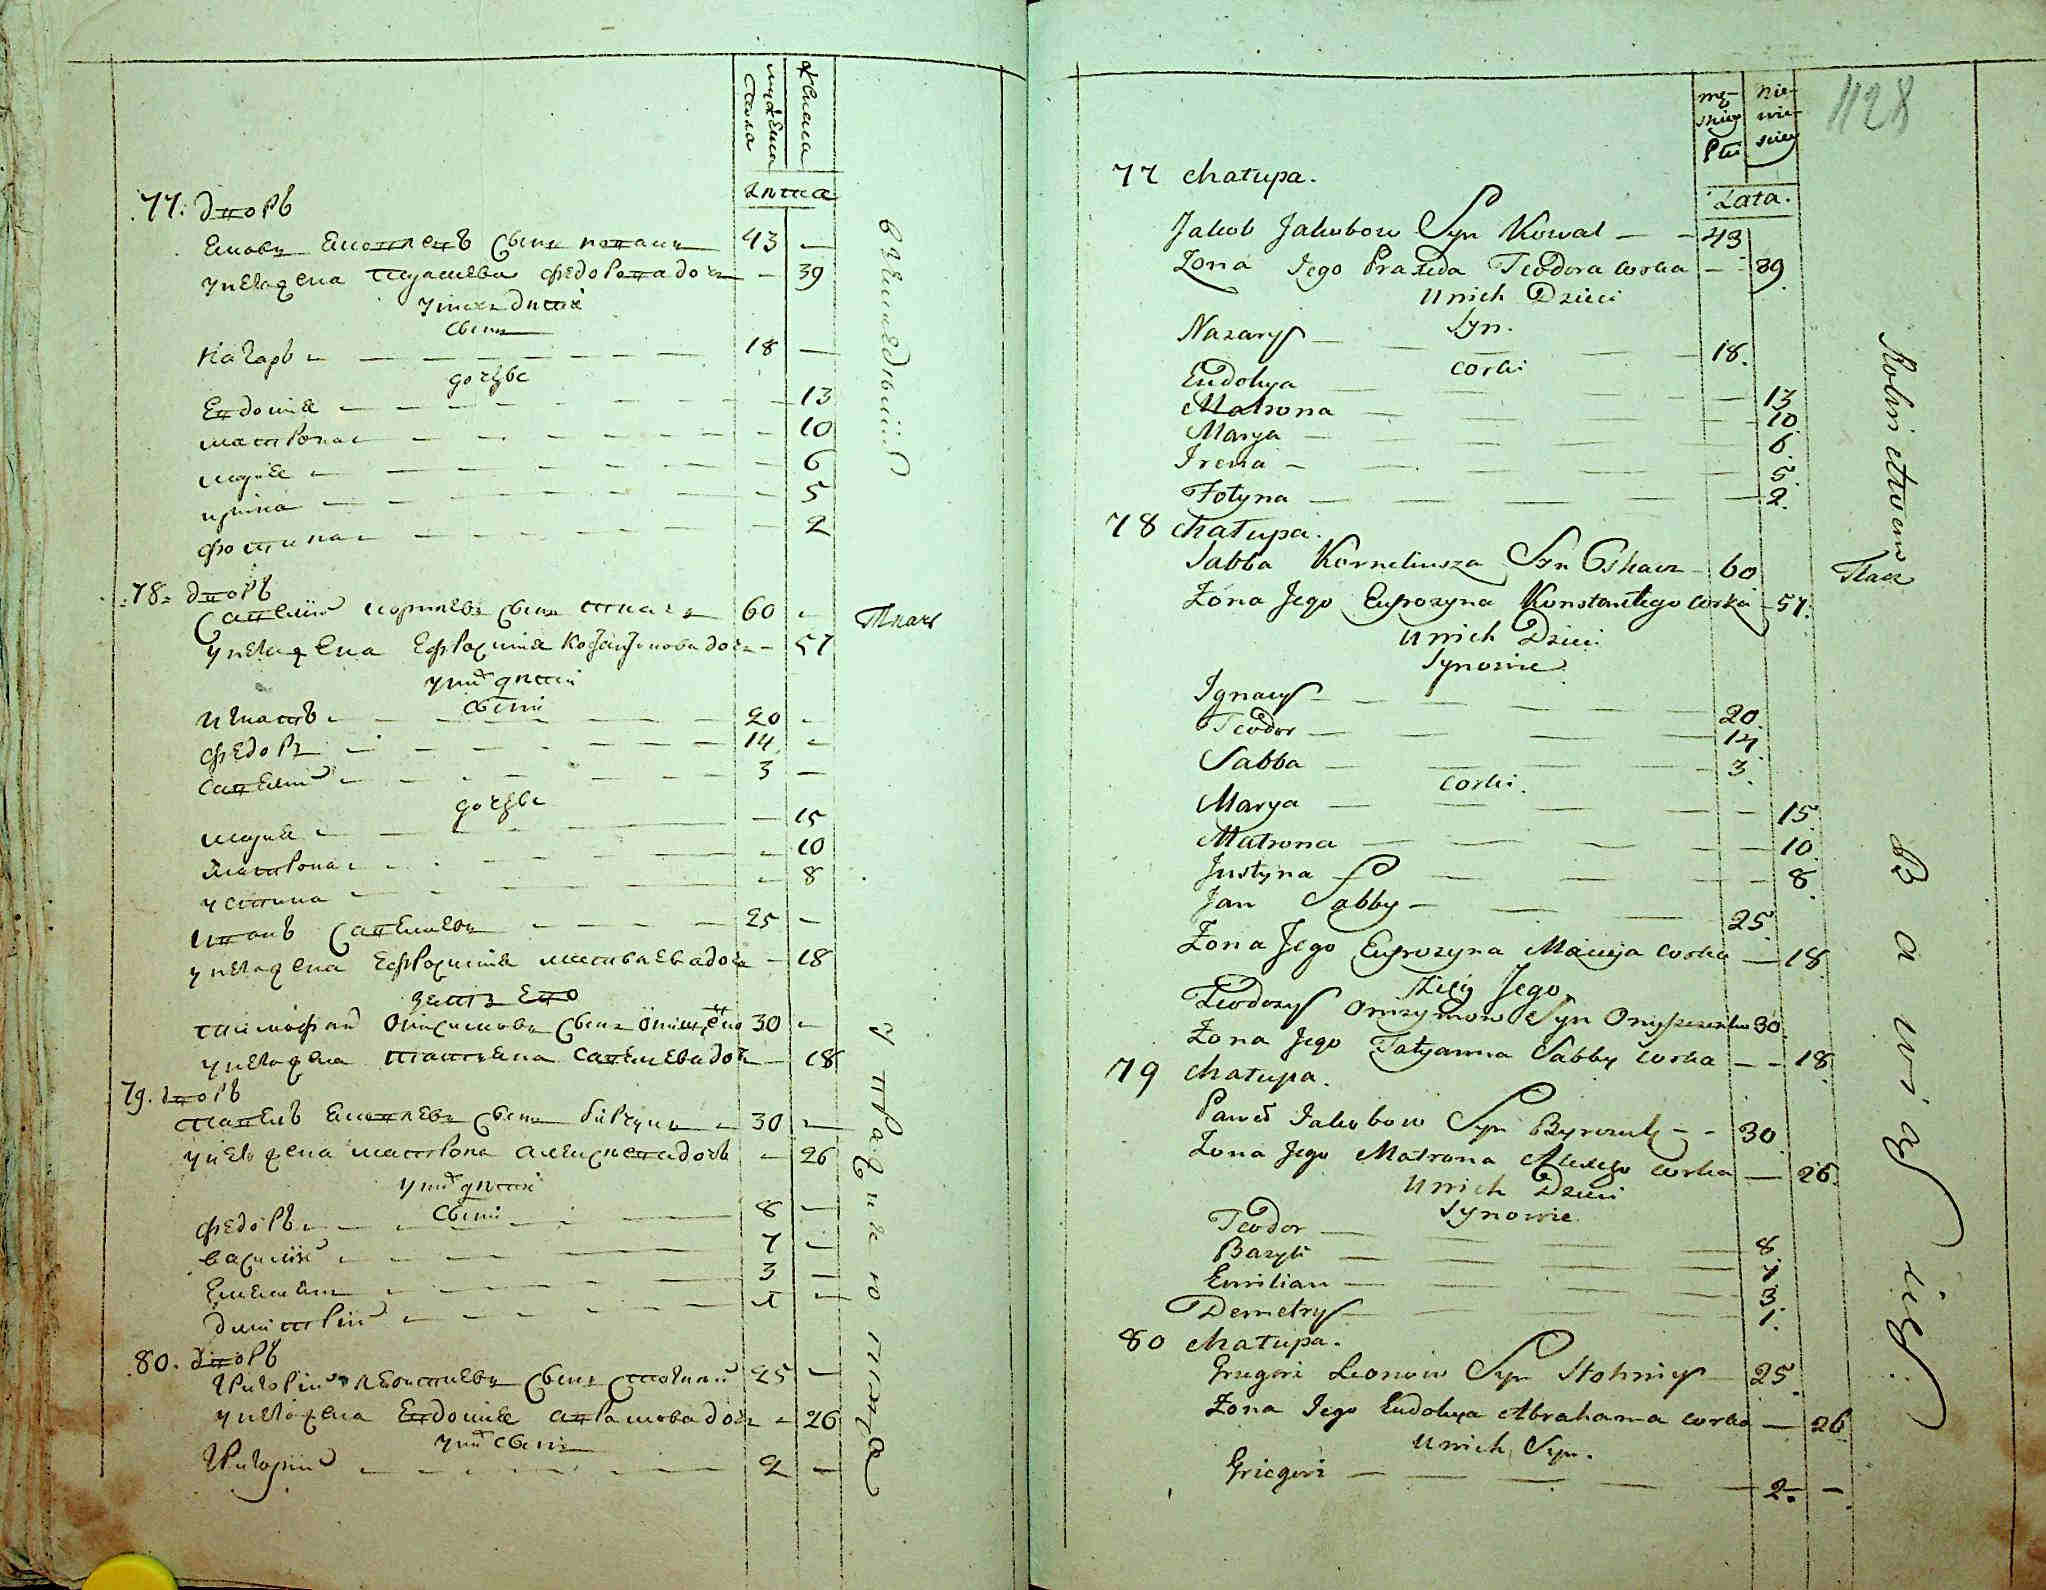 мужеска
пола
женска
Лѣта
77: дворъ
Яковъ Яковлевъ сынъ коваль 43 —
у него жена Федорова дочь — 39
у нихъ дѣти
сынъ
Назаръ — 18 —
дочерѣ
Евдокия — 13
Матрона — 10
Мария — 6
Ирина — 5
Фотина — 2
78: дворъ
Савелий Корнѣевъ сынъ ткачъ 60 — Ткачъ
у него жена Ефросиния Констянтинова дочь — 57
у нихъ дѣти
сыны
Игнатъ — 20 —
Федоръ — 14 —
Савелий — 3 —
дочерѣ
Мария — 15
Матрона — 10
Устина — 8
Иванъ Савельевъ — 25 —
у него жена Ефросиния Матвѣева дочь — 18
зять его
30 —
у него жена Татиана Савельева дочь — 18
79. дворъ
Павелъ Яковлевъ сынъ 30 —
у него жена Матрона Алексѣева дочь — 26
у нихъ дѣти
сыны
Федоръ — 8 —
Василий — 7 —
Емельянъ — 3 —
Димитрий — 1 —
80. дворъ
Григорий Леонтиевъ сынъ 25 —
у него жена Евдокия Аврамова дочь — 26
у нихъ сынъ
Григорий — 2 —
в земледѣлии
упражняются
1128
mę-
skiey
Płci
nie-
wie-
sciey
Lata.
77 chałupa.
Jakob Jakubow Syn Kowal — — 43
Zona Jego Praxeda Teodora corka — — 39
U nich Dzieci
Syn.
Nazary — 18.
corki
Eudokya — 13
Matrona — 10
Marya — 6.
Irena — 5
Fotyna — 2.
78 chałupa.
Sabba Korneliusza Syn Tkacz — 60 Tkacz
Zona Jego Eufrozyna Konstantego corka — 57.
U nich Dzieci
Synowie
Ignacy — 20
Teodor — 14
Sabba — 3
corki.
Marya — 15
Matrona — 10
Justyna — 8.
Jan Sabby — 25
Zona Jego Eufrozyna Macieja corka — 18
Zięć Jego
Teodozy Onizymow Syn 30
Zona Jego Tatyanna Sabby corka — — 18
79 chałupa.
Paweł Jakubow Syn — — 30
Zona Jego Matrona Alexego corka — 26.
U nich Dzieci
Synowie
Teodor — 8
Bazyli — 7
Emilian — 3
Demetry — 1.
80 chałupa.
Grzegorz Leonow Syn 25
Zona Jego Eudokya Abrahama corka — 26
U nich Syn.
2. —
Rolnictwem
Bawią się.